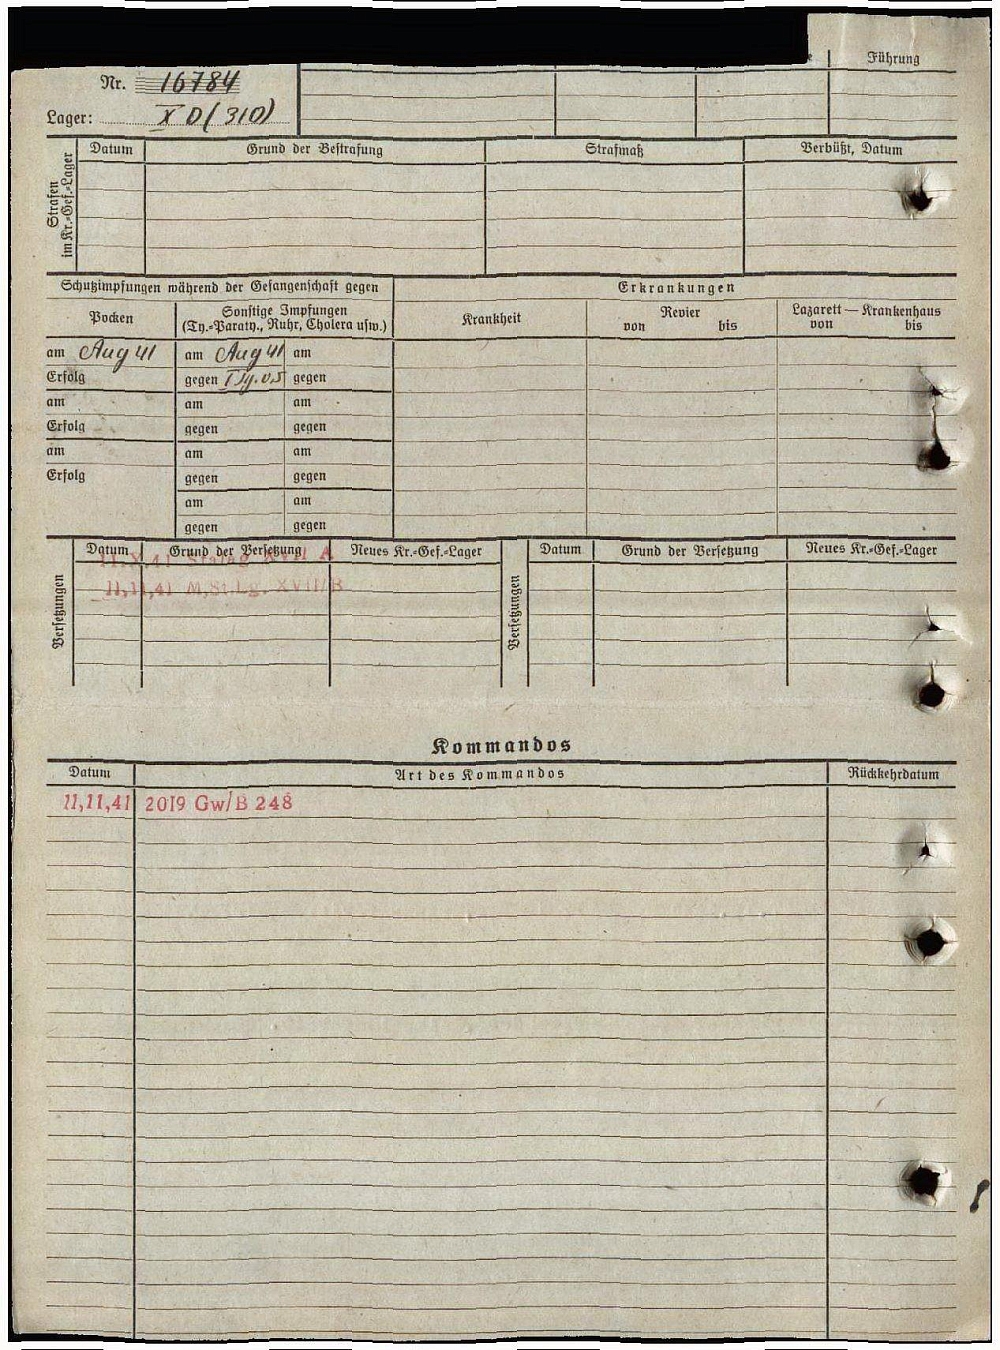 Führung
Nr. 16784
Lager: X D (310)
Strafen im Kr.=Gef.=Lager
Datum Grund der Bestrafung Strafmaß Verbüßt, Datum
Schutzimpfungen während der Gefangenschaft gegen Erkrankungen
Pocken Sonstige Impfungen (Ty.=Paraty., Ruhr, Cholera usw.) Krankheit Revier von bis Lazarett — Krankenhaus von bis
am Aug 41 am Aug 41 am
Erfolg gegen gegen
am am am
Erfolg gegen gegen
am am am
Erfolg gegen gegen
am am
gegen gegen
Versetzungen Datum Grund der Versetzung Neues Kr.=Gef.=Lager Versetzungen Datum Grund der Versetzung Neues Kr.=Gef.=Lager
11.X.41 Stalag XVII A
11,11,41 M.St.Lg. XVII/B
Kommandos
Datum Art des Kommandos Rückkehrdatum
11,11,41 2019 Gw/B 248